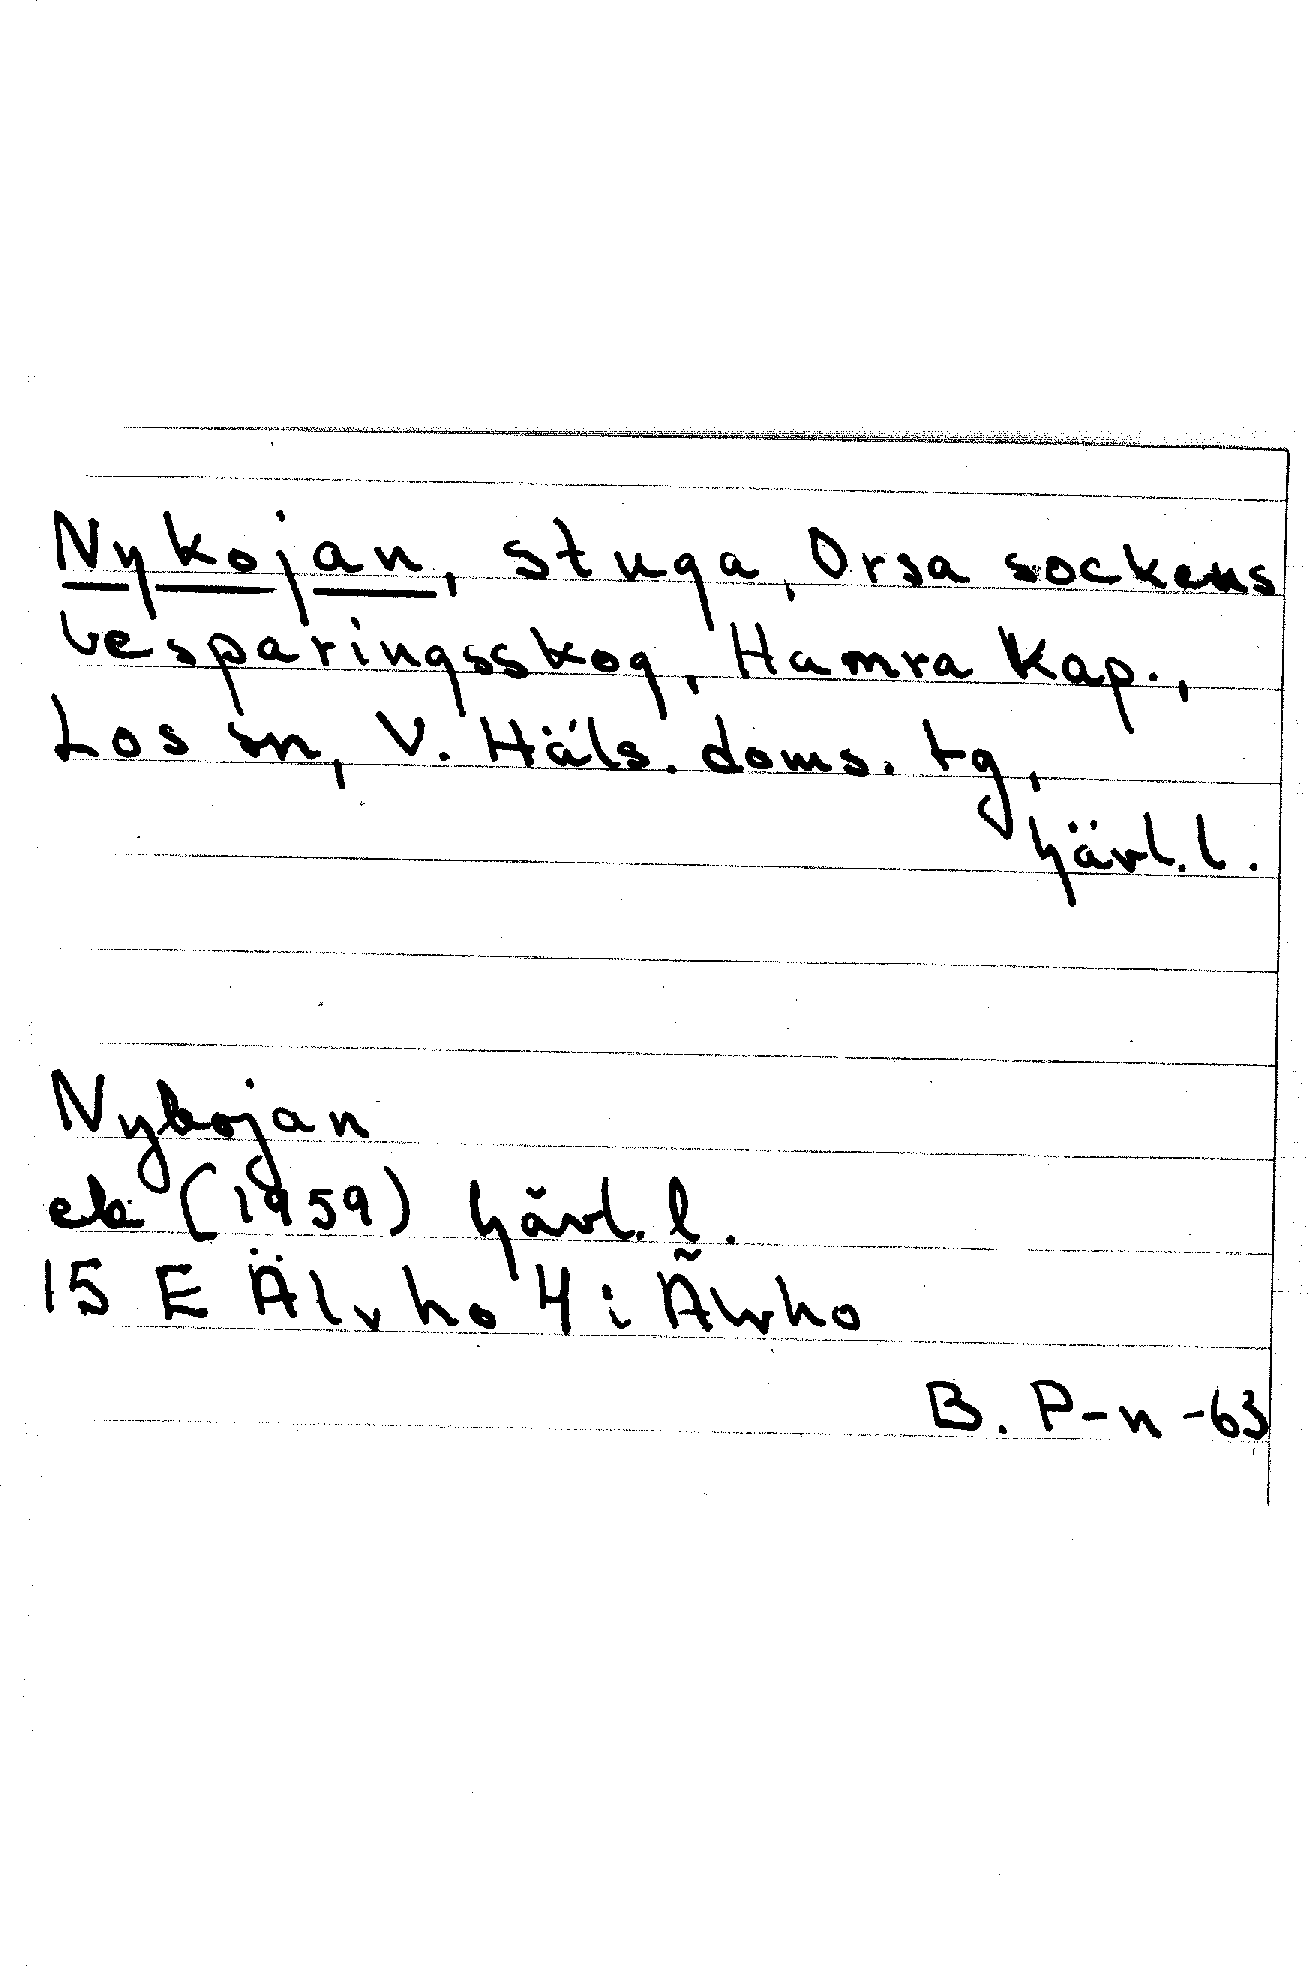 Nykojan, stuga, Orsa sockens
besparingsskog, Hamra kap.,
Los sn, V. Häls. doms. tg,
Gävl. l.
Nykojan
ek (1959) Gävl. l.
15 E Älvho 4 i Älvho
B. P-n -63